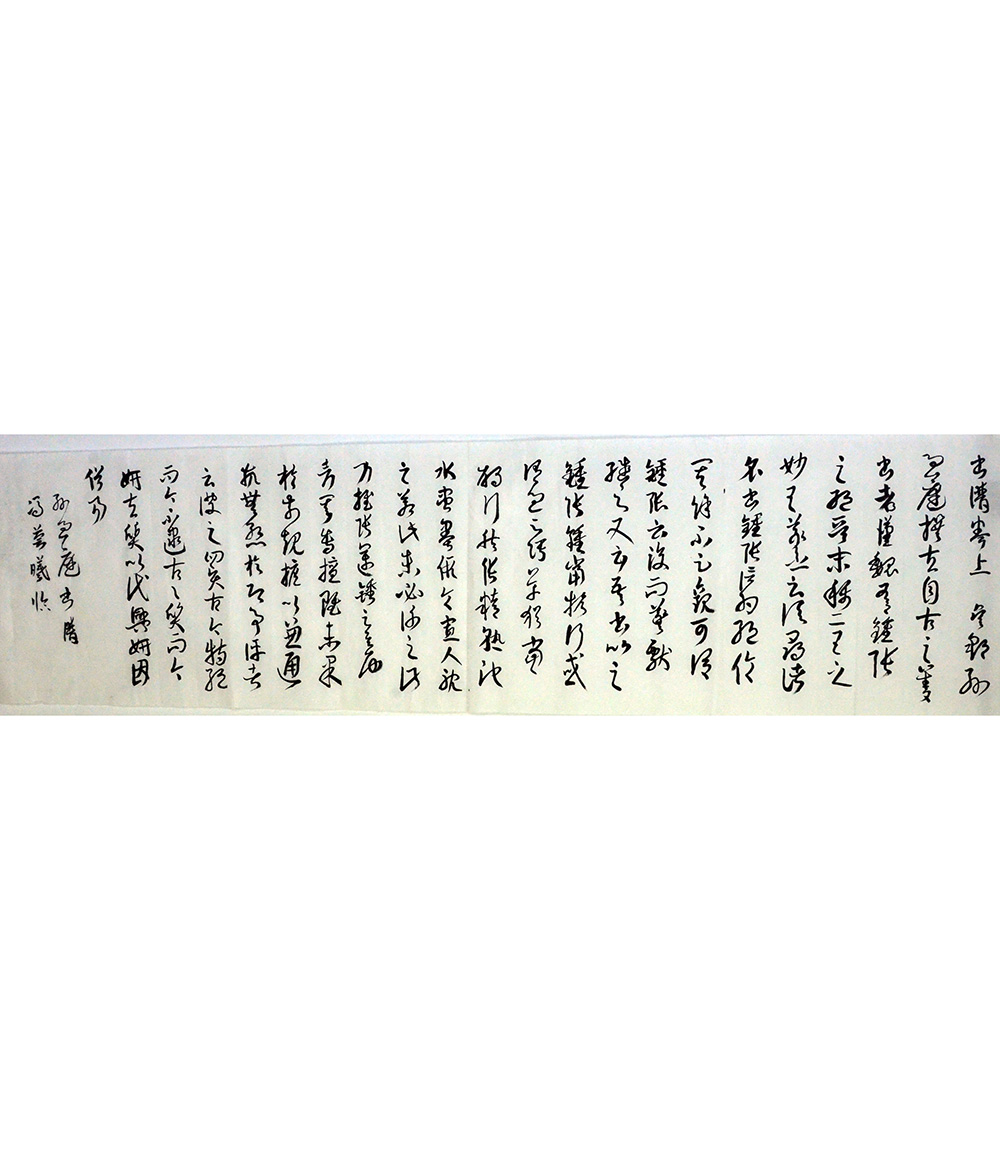 書譜卷上 吳郡孫
過庭撰夫自古之善
書者漢魏有鍾張
之絕晉末稱二王之
妙王羲之云頃尋諸
名書鍾張信為絕倫
其餘不足觀可謂
鍾張云沒而羲獻
繼之又云吾書比之
鍾張鍾當抗行或
謂過之張草猶當
雁行然張精熟池
水盡墨假令寡人耽
之若此未必謝之此
乃推張邁鍾之意也
考其專擅雖未果
於前規摭以兼通
故無慚於即事評者
云彼之四賢古今特絕
而今不逮古〻質而今
妍夫質以代興妍因
俗易
孫過庭書譜
馮曦臨